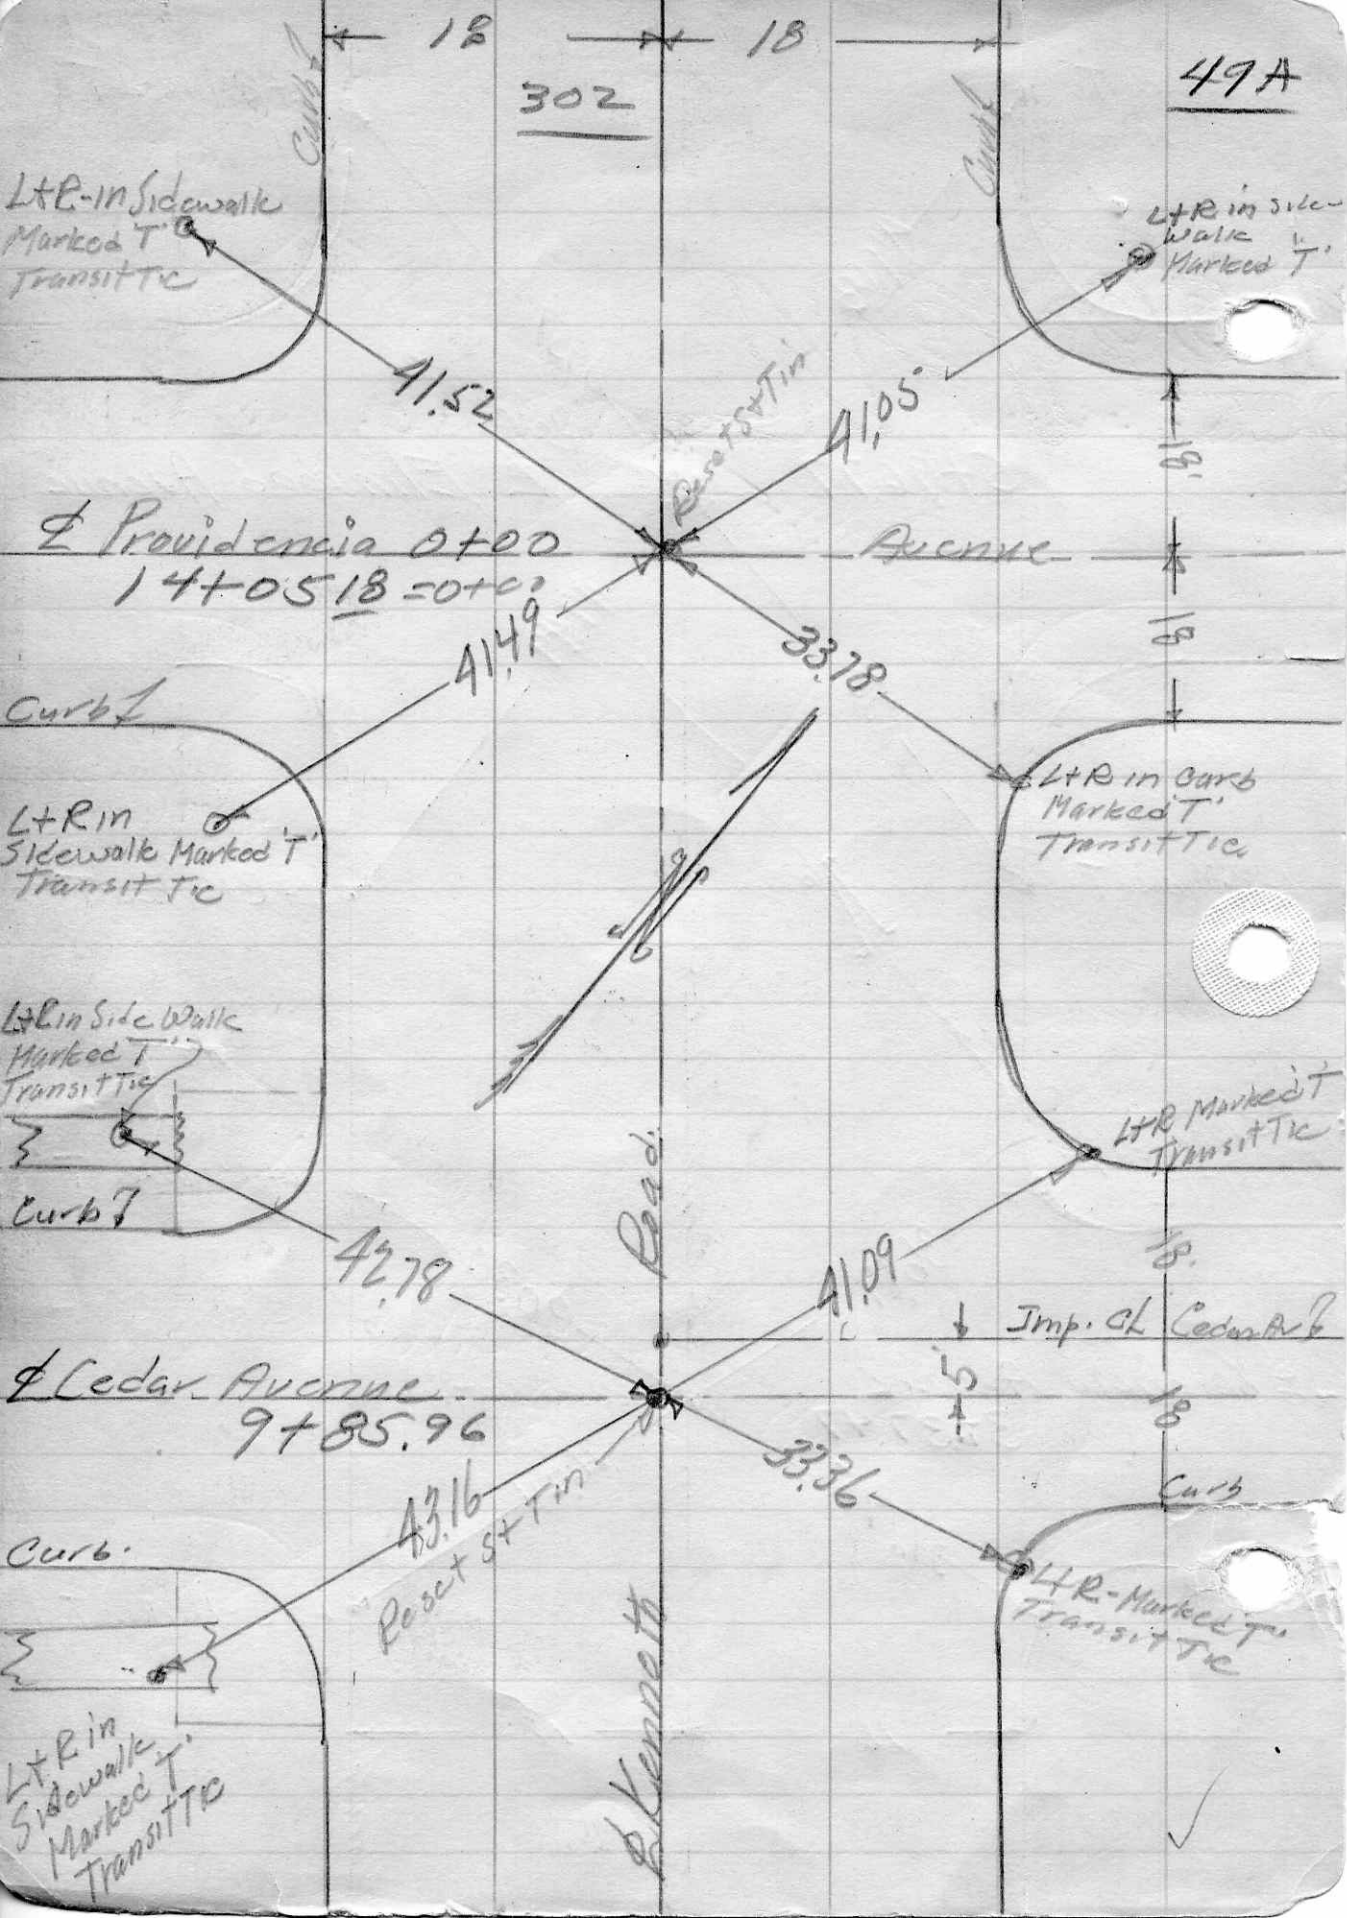 18
18
302
49A
Curb
Curb
L+R-in Sidewalk
Marked 'T'
Transit Tie
L+R in Side-
walk
Marked 'T'
41.52
41.05
Reset S+Tin
18
℄ Providencia 0+00
Avenue
14+05 18 = 0+00
18
41.49
33.78
Curb
L+R in Curb
Marked 'T'
Transit Tie
L+R in
Sidewalk Marked 'T'
Transit Tie
N
L+R in Side Walk
Marked 'T'
Transit Tie
L+R Marked 'T'
Transit Tie
Curb
Road
42.78
41.09
18
Imp. CL Cedar Av
5
℄ Cedar Avenue
18
9+85.96
43.16
Reset S+Tin
33.36
Curb
Curb.
L+R-Marked 'T'
Transit Tie
L+R in
Sidewalk
Marked 'T'
Transit Tie
℄ Kenneth